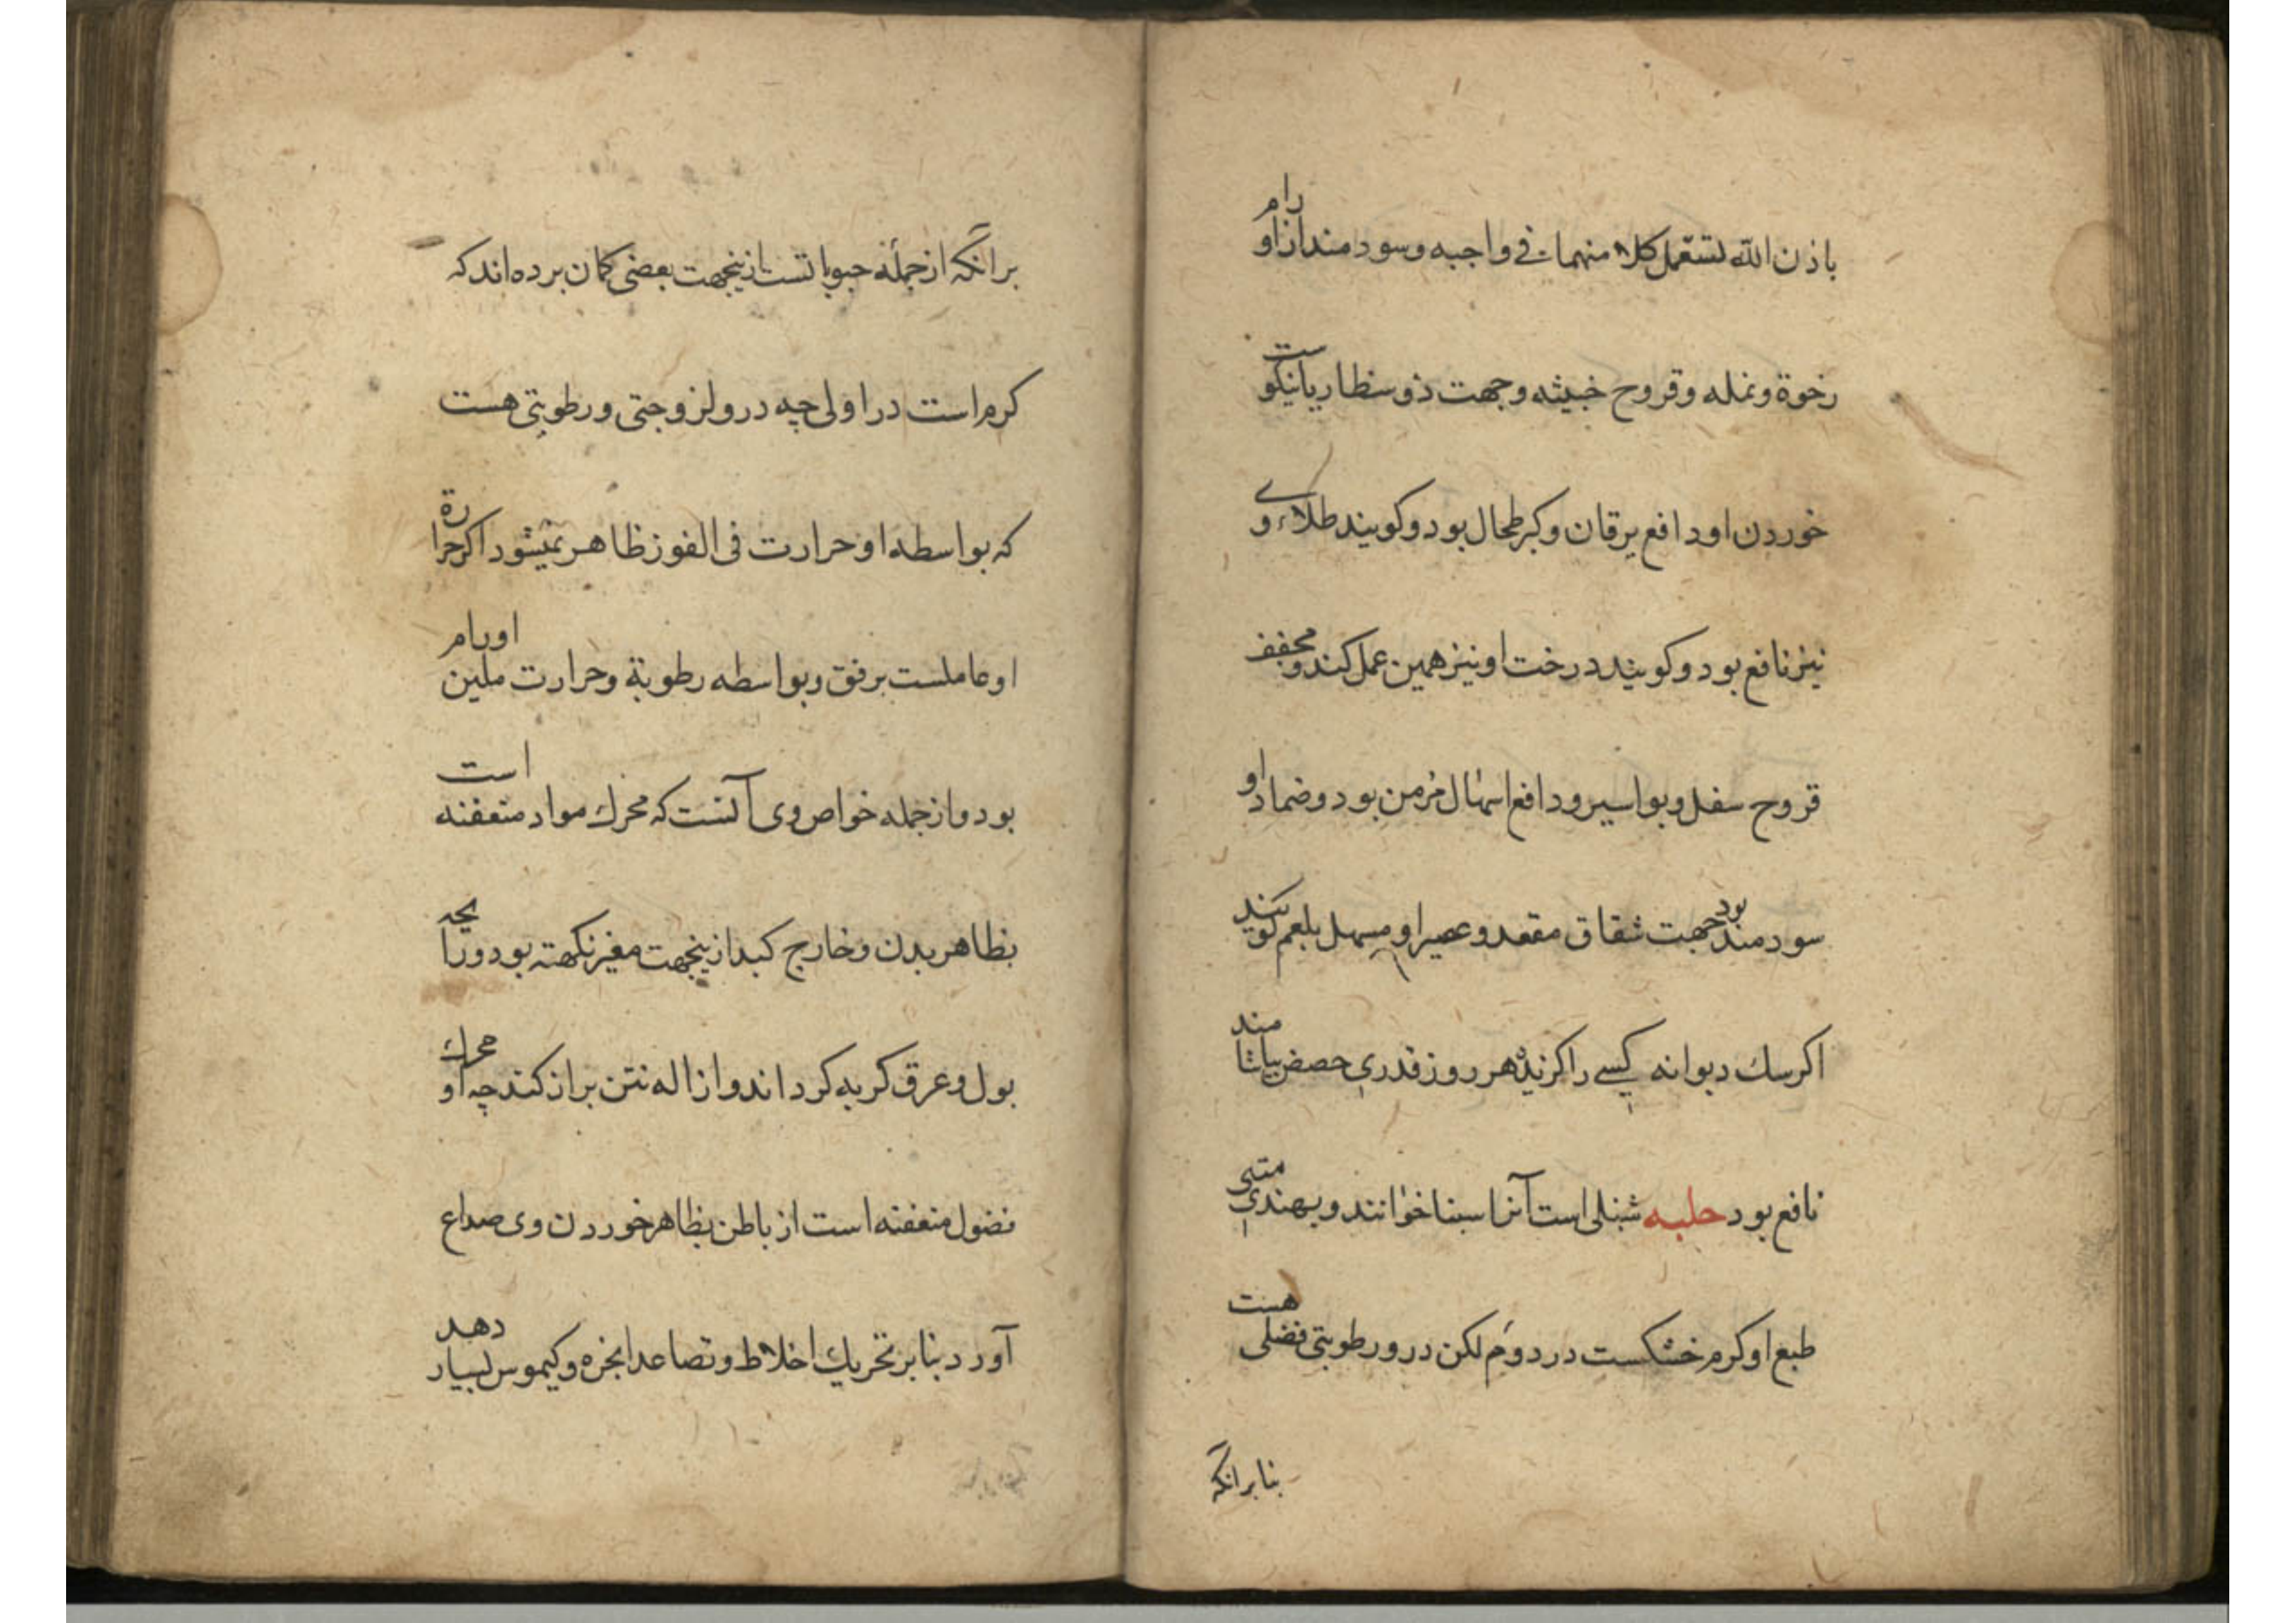 باذن الله تستعمل کلا منهما فی واجبه و سودمند از اورام
رخوة و نمله و قروح خبیثه و جهت ذوسنطاریا نیکوست
خوردن او دافع یرقان و کبر طحال بود و کویند طلاء وی
نیز نافع بود و کویند درخت او نیز همین عمل کند و مجفف
قروح سفل و بواسیر و دافع اسهال مزمن بود و ضماد او
سودمند بود جهت شقاق مقعد و عصیر او مسهل بلغم کویند
اکر سک دیوانه کسی را کزیده هر روز قدری حضض بیاشامند
نافع بود حلبه شنبلی است آنرا سبنا خوانند و بهندی متهی
طبع او کرم خشکست در دوم لکن درو رطوبتی فضلی هست
بنا برانکه
برانکه از جملهٔ حبوباتست ازینجهت بعضی کمان برده اند که
کرم است در اولی چه درو لزوجتی و رطوبتی هست
که بواسطه او حرارت فی الفور ظاهر نمیشود اکر حرارة
او عاملست برفق و بواسطه رطوبة و حرارت ملین اورام
بود و از جمله خواص وی آنست که محرك مواد متعفنه است
بظاهر بدن و خارج کبد ازینجهت مغیر نکهته بود و رایحه
بول و عرق کریه کرداند و ازاله نتن براز کند چه او محرك
فضول متعفنه است از باطن بظاهر خوردن وی صداع
آورد بنا بر تحریك اخلاط و تصاعد ابخره و کیموس بسیار دهد